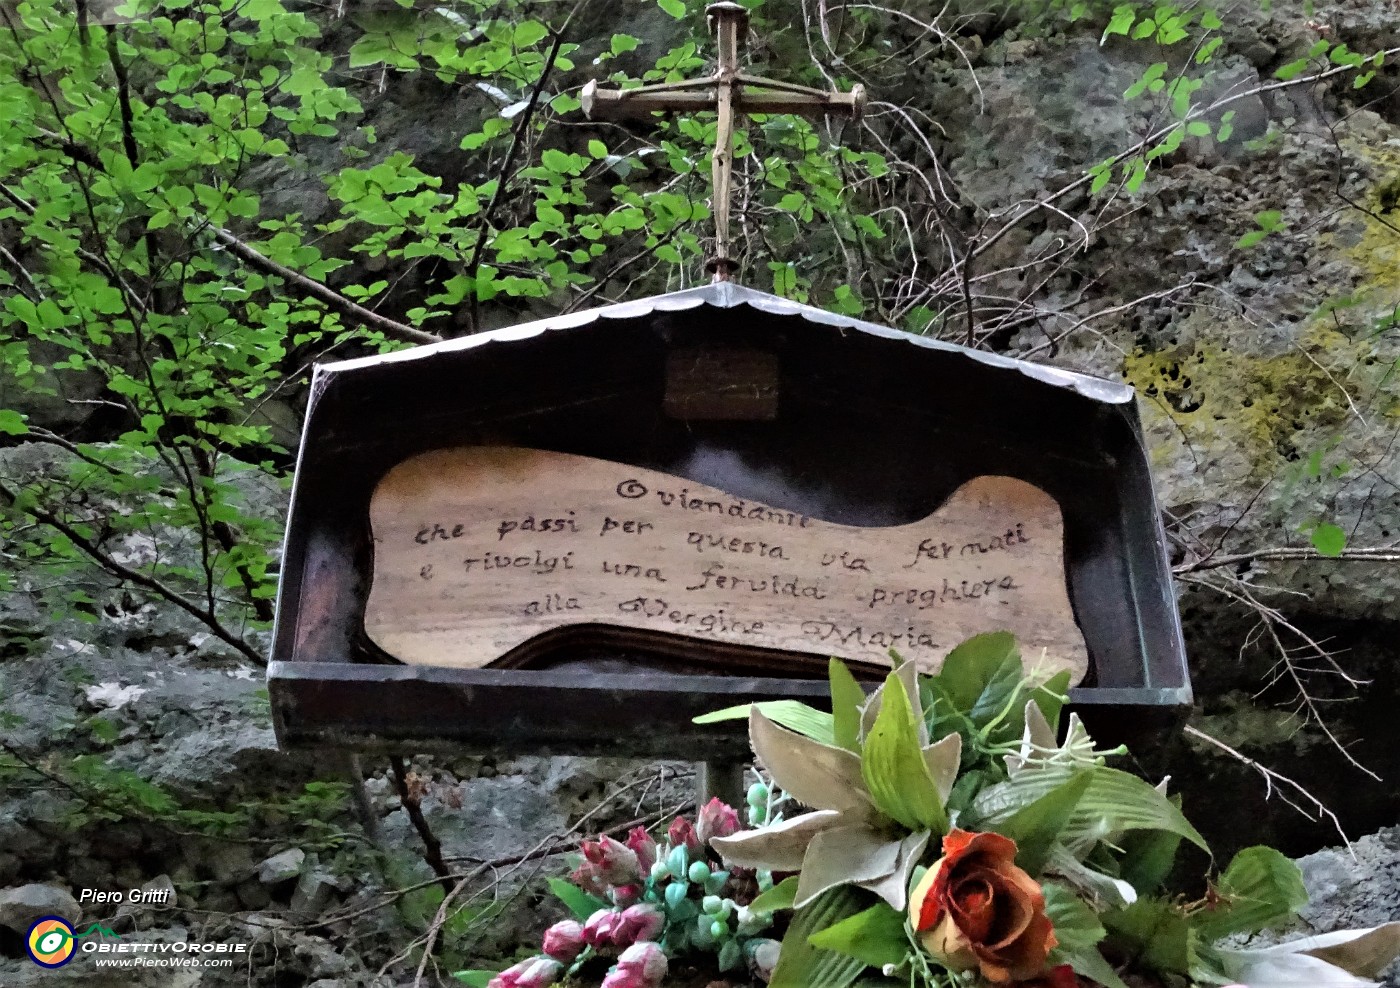 O viandante
che passi per questa via fermati
e rivolgi una fervida preghiera
alla Vergine Maria
Piero Gritti
ObiettivOrobie
www.PieroWeb.com